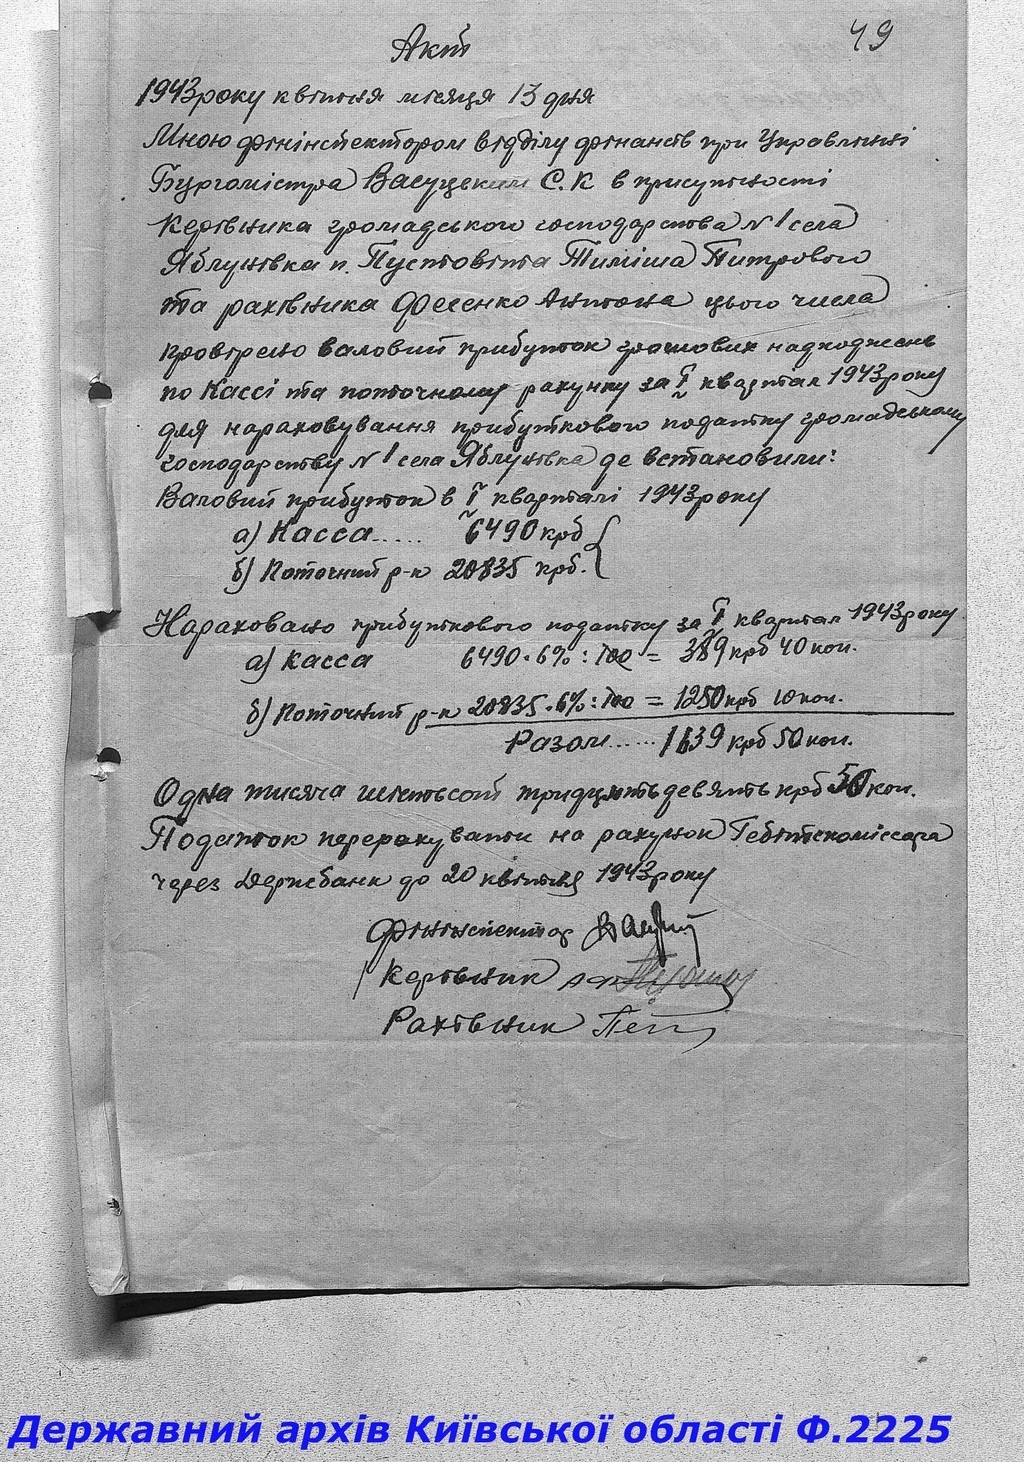 49
Акт
1943 року квітня місяця 13 дня
Мною фінінспектором відділу фінансів при Управлінні
Бургомістра Васуцьким С.К в присутності
Керівника громадського господарства N 1 села
Яблунівка п. Пустовіта Тиміша Питрового
та рахівника Фесенко Антона цього числа
провірено валовий прибуток грошових надходжень
по Кассі та поточному рахунку за I квартал 1943 року
для нараховування прибуткового податку громадському
господарству N 1 села Яблунівка де встановили:
Валовий прибуток в I кварталі 1943 року
а) Касса..... 6490 крб
б) Поточний р-к 20835 крб.
Нараховано прибуткового податку за I квартал 1943 року
а) касса 6490 · 6% : 100 = 389 крб 40 коп.
б) Поточний р-к 20835 · 6% : 100 = 1250 крб 10 коп.
Разом...... 1639 крб 50 коп.
Одна тисяча шістьсот тридцять девять крб 50 коп.
Податок перерахувати на рахунок Гебітскоміссара
через Держбанк до 20 квітня 1943 року
Фінінспектор
Керівник
Рахівник
Державний архів Київської області Ф.2225